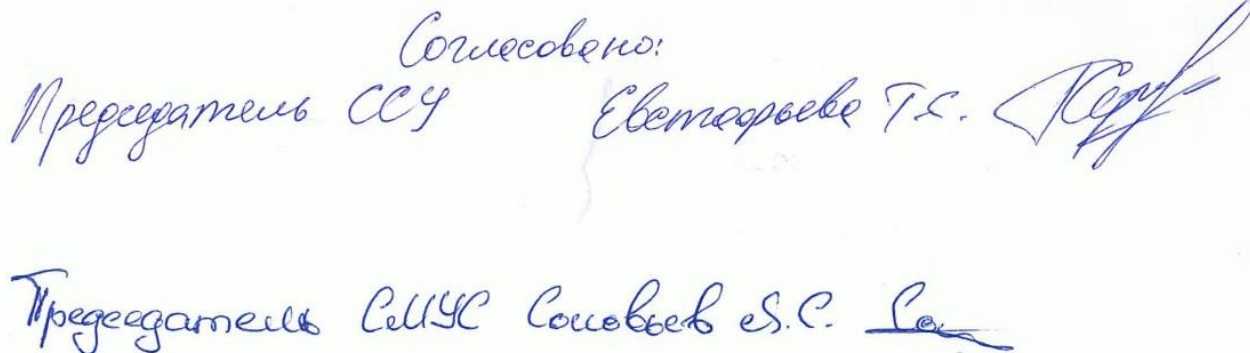 Согласовано:
Председатель ССУ Евстафьева Т.С.
Председатель СМУС Соловьев А.С.